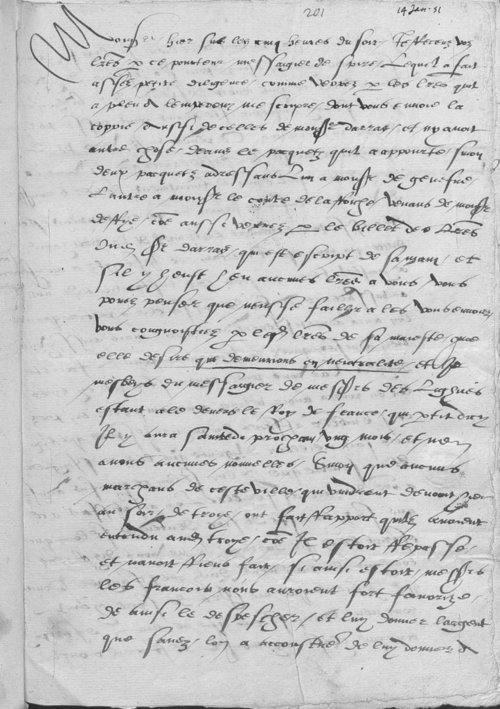 201
14 Jan. 51
hier sur les cinq heures du soir Je receuz voz
lres p ce porteur messaigier de spire, Lequel a fait
assez petite diligence, comme verrez p les lres quil
a pleu a lempereur me scripre, dont vous envoie la
copie, aussi de celles de mons.r darras, et ny avoit
autre chose dedans le pacquetz quil a apporte, sinon
deux pacquetz adressans Lun a mons.r de genefve,
Lautre a mons.r le conte de la roiche venans de mons.r
de rye, coe aussi verrez p le billet
dud. s.r darras, qui est escript de sa main, et
sil y heust heu aucunes lres a vous, vous
povez penser que neusse failly a les vous envoier
vous congnoistrez p lesd. lres de sa maieste, que
elle desire que demeurions en neutralite, et Je
mesbays du messaigier de mess.rs des Lighues
estant ale devers le Roy de france, qui ptit dicy
Il y aura samedi prochain ung mois, et nen
avons aucunes nouvelles, Sinon que aucuns
marchans de ceste ville, qui vindrent devant hier
au soir, de troye, ont fait rapport quilz avoient
entendu aud. troye, coe Il estoit repasse,
et navoit riens fait, si ainsi estoit, mess.rs
les francois nous auroient fort favorize,
de ainsi le despescher, et luy donner largent
que savez, lon a acoustume de luy donner